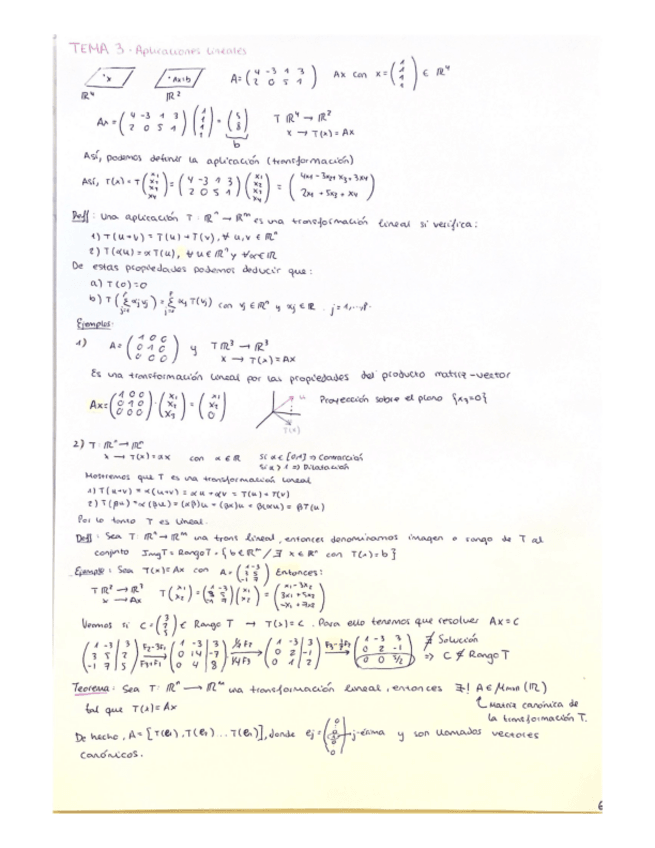 TEMA 3 - Aplicaciones lineales
·x  ·Ax=b  A = ( 4 -3 1 3 / 2 0 5 1 )  Ax con x = ( 1 / 1 / 1 / 1 ) ∈ ℝ⁴
ℝ⁴  ℝ²
Ax = ( 4 -3 1 3 / 2 0 5 1 ) ( 1 / 1 / 1 / 1 ) = ( 5 / 8 )  T ℝ⁴ → ℝ²
b  x → T(x) = Ax
Así, podemos definir la aplicación (transformación)
Así, T(x) = T ( x₁ / x₂ / x₃ / x₄ ) = ( 4 -3 1 3 / 2 0 5 1 ) ( x₁ / x₂ / x₃ / x₄ ) = ( 4x₁ - 3x₂ + x₃ + 3x₄ / 2x₁ + 5x₃ + x₄ )
Deff: Una aplicación T: ℝⁿ → ℝᵐ es una transformación lineal si verifica:
1) T(u+v) = T(u) + T(v), ∀ u,v ∈ ℝⁿ
2) T(αu) = αT(u), ∀ u ∈ ℝⁿ y ∀α ∈ ℝ
De estas propiedades podemos deducir que:
a) T(0) = 0
b) T( Σ αⱼvⱼ ) = Σ αⱼ T(vⱼ) con vⱼ ∈ ℝⁿ y αⱼ ∈ ℝ. j = 1,...,p.
Ejemplos:
1) A = ( 1 0 0 / 0 1 0 / 0 0 0 ) y T ℝ³ → ℝ³
x → T(x) = Ax
Es una transformación lineal por las propiedades del producto matriz-vector
Ax = ( 1 0 0 / 0 1 0 / 0 0 0 ) · ( x₁ / x₂ / x₃ ) = ( x₁ / x₂ / 0 )  u  Proyección sobre el plano {x₃=0}
T(u)
2) T: ℝⁿ → ℝⁿ
x → T(x) = αx con α ∈ ℝ  Si α ∈ [0,1] ⇒ Contracción
Si α > 1 ⇒ Dilatación
Mostremos que T es una transformación lineal
1) T(u+v) = α(u+v) = αu + αv = T(u) + T(v)
2) T(βu) = α(βu) = (αβ)u = (βα)u = β(αu) = βT(u)
Por lo tanto T es lineal.
Deff: Sea T: ℝⁿ → ℝᵐ una trans lineal, entonces denominamos imagen o rango de T al
conjunto Img T = Rango T = { b ∈ ℝᵐ / ∃ x ∈ ℝⁿ con T(x) = b }
Ejemplo: Sea T(x) = Ax con A = ( 1 -3 / 3 5 / -1 7 ) Entonces:
T ℝ² → ℝ³  T ( x₁ / x₂ ) = ( 1 -3 / 3 5 / -1 7 ) ( x₁ / x₂ ) = ( x₁ - 3x₂ / 3x₁ + 5x₂ / -x₁ + 7x₂ )
x → Ax
Veamos si C = ( 3 / 2 / 5 ) ∈ Rango T → T(x) = c. Para ello tenemos que resolver Ax = C
( 1 -3 | 3 / 3 5 | 2 / -1 7 | 5 ) F₂-3F₁ F₃+F₁ → ( 1 -3 | 3 / 0 14 | -7 / 0 4 | 8 ) 1/7 F₂ 1/4 F₃ → ( 1 -3 | 3 / 0 2 | -1 / 0 1 | 2 ) F₃-½F₂ → ( 1 -3 3 / 0 2 -1 / 0 0 5/2 ) ∄ Solución
⇒ C ∉ Rango T
Teorema: Sea T: ℝⁿ → ℝᵐ una transformación lineal, entonces ∃! A ∈ Mₘₓₙ(ℝ)
tal que T(x) = Ax  Matriz canónica de
la transformación T.
De hecho, A = [T(e₁), T(e₂) ... T(eₙ)], donde eⱼ = ( 0 / 0 / 0 ) j-ésima y son llamados vectores
canónicos.
6